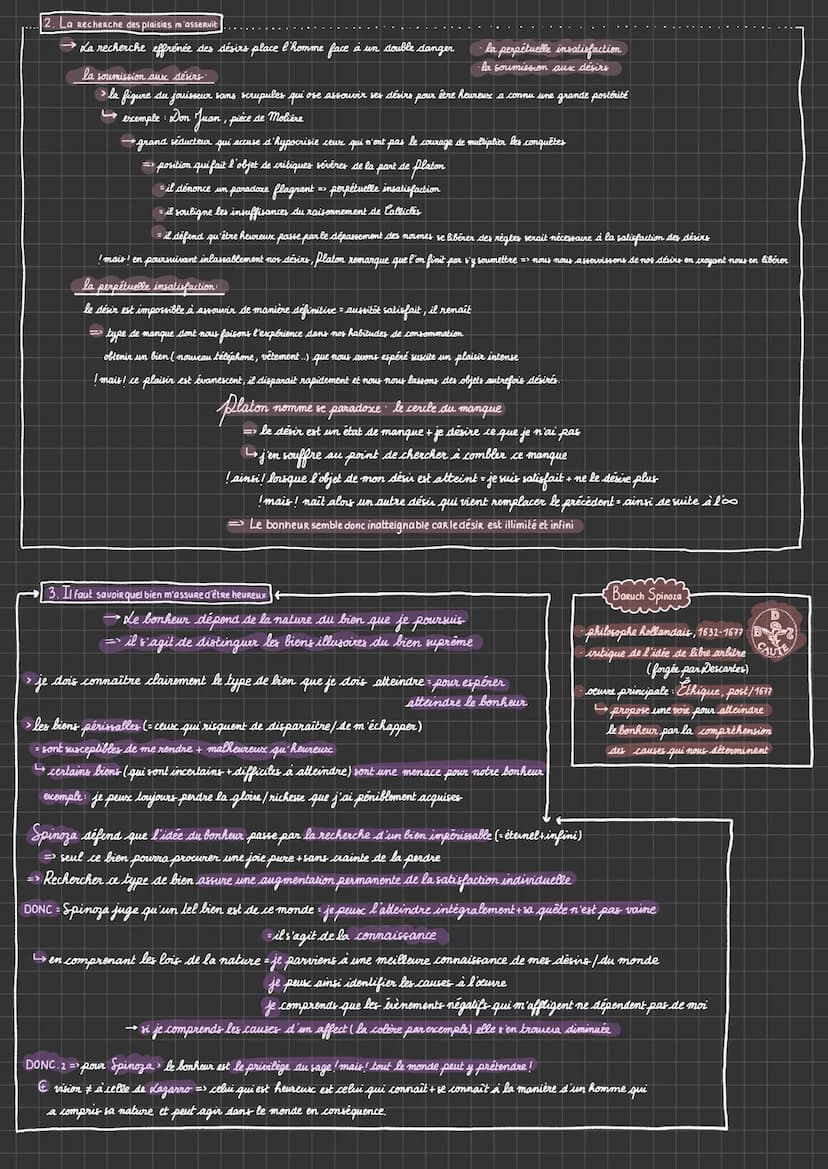 2. La recherche des plaisirs m'asservit
→ La recherche effrénée des désirs place l'homme face à un double danger · la perpétuelle insatisfaction
· la soumission aux désirs
la soumission aux désirs:
> la figure du jouisseur sans scrupules qui ose assouvir ses désirs pour être heureux a connu une grande postérité
↳ exemple : Don Juan, pièce de Molière
→ grand séducteur qui accuse d'hypocrisie ceux qui n'ont pas le courage de multiplier les conquêtes
=> position qui fait l'objet de critiques sévères de la part de Platon
= il dénonce un paradoxe flagrant => perpétuelle insatisfaction
= il souligne les insuffisances du raisonnement de Calliclès
= il défend qu'être heureux passe par le dépassement des normes se libérer des règles serait nécessaire à la satisfaction des désirs
! mais ! en poursuivant inlassablement nos désirs, Platon remarque que l'on finit par s'y soumettre => nous nous asservissons de nos désirs en croyant nous en libérer
la perpétuelle insatisfaction:
le désir est impossible à assouvir de manière définitive = aussitôt satisfait, il renaît
=> type de manque dont nous faisons l'expérience dans nos habitudes de consommation
obtenir un bien (nouveau téléphone, vêtement..) que nous avons espéré suscite un plaisir intense
! mais ! ce plaisir est évanescent, il disparait rapidement et nous nous lassons des objets autrefois désirés.
Platon nomme se paradoxe · le cercle du manque
=> le désir est un état de manque + je désire ce que je n'ai pas
↳ j'en souffre au point de chercher à combler ce manque
! ainsi ! lorsque l'objet de mon désir est atteint = je suis satisfait + ne le désire plus
! mais ! naît alors un autre désir qui vient remplacer le précédent = ainsi de suite à l'∞
=> Le bonheur semble donc inatteignable car le désir est illimité et infini
3. Il faut savoir quel bien m'assure d'être heureux
→ Le bonheur dépend de la nature du bien que je poursuis
=> il s'agit de distinguer les biens illusoires du bien suprême
> je dois connaître clairement le type de bien que je dois atteindre = pour espérer
atteindre le bonheur
> les biens périssables (= ceux qui risquent de disparaître/de m'échapper)
= sont susceptibles de me rendre + malheureux qu'heureux
↳ certains biens (qui sont incertains + difficiles à atteindre) sont une menace pour notre bonheur
exemple: je peux toujours perdre la gloire/richesse que j'ai péniblement acquises
Spinoza défend que l'idée du bonheur passe par la recherche d'un bien impérissable (= éternel + infini)
=> seul ce bien pourra procurer une joie pure + sans crainte de la perdre
=> Rechercher ce type de bien assure une augmentation permanente de la satisfaction individuelle
DONC = Spinoza juge qu'un tel bien est de ce monde = je peux l'atteindre intégralement + sa quête n'est pas vaine
= il s'agit de la connaissance
↳ en comprenant les lois de la nature = je parviens à une meilleure connaissance de mes désirs/du monde
je peux ainsi identifier les causes à l'œuvre
je comprends que les évènements négatifs qui m'affligent ne dépendent pas de moi
→ si je comprends les causes d'un affect (la colère par exemple) elle s'en trouvera diminuée
DONC. 2 => pour Spinoza > le bonheur est le privilège du sage ! mais ! tout le monde peut y prétendre !
vision ≠ à celle de Lazarro => celui qui est heureux est celui qui connaît + se connaît à la manière d'un homme qui
a compris sa nature et peut agir dans le monde en conséquence.
Baruch Spinoza
· philosophe hollandais, 1632-1677
· critique de l'idée de libre arbitre
(forgée par Descartes)
· œuvre principale : Éthique, post/1677
↳ propose une voie pour atteindre
le bonheur par la compréhension
des causes qui nous déterminent
B D S
CAUTE